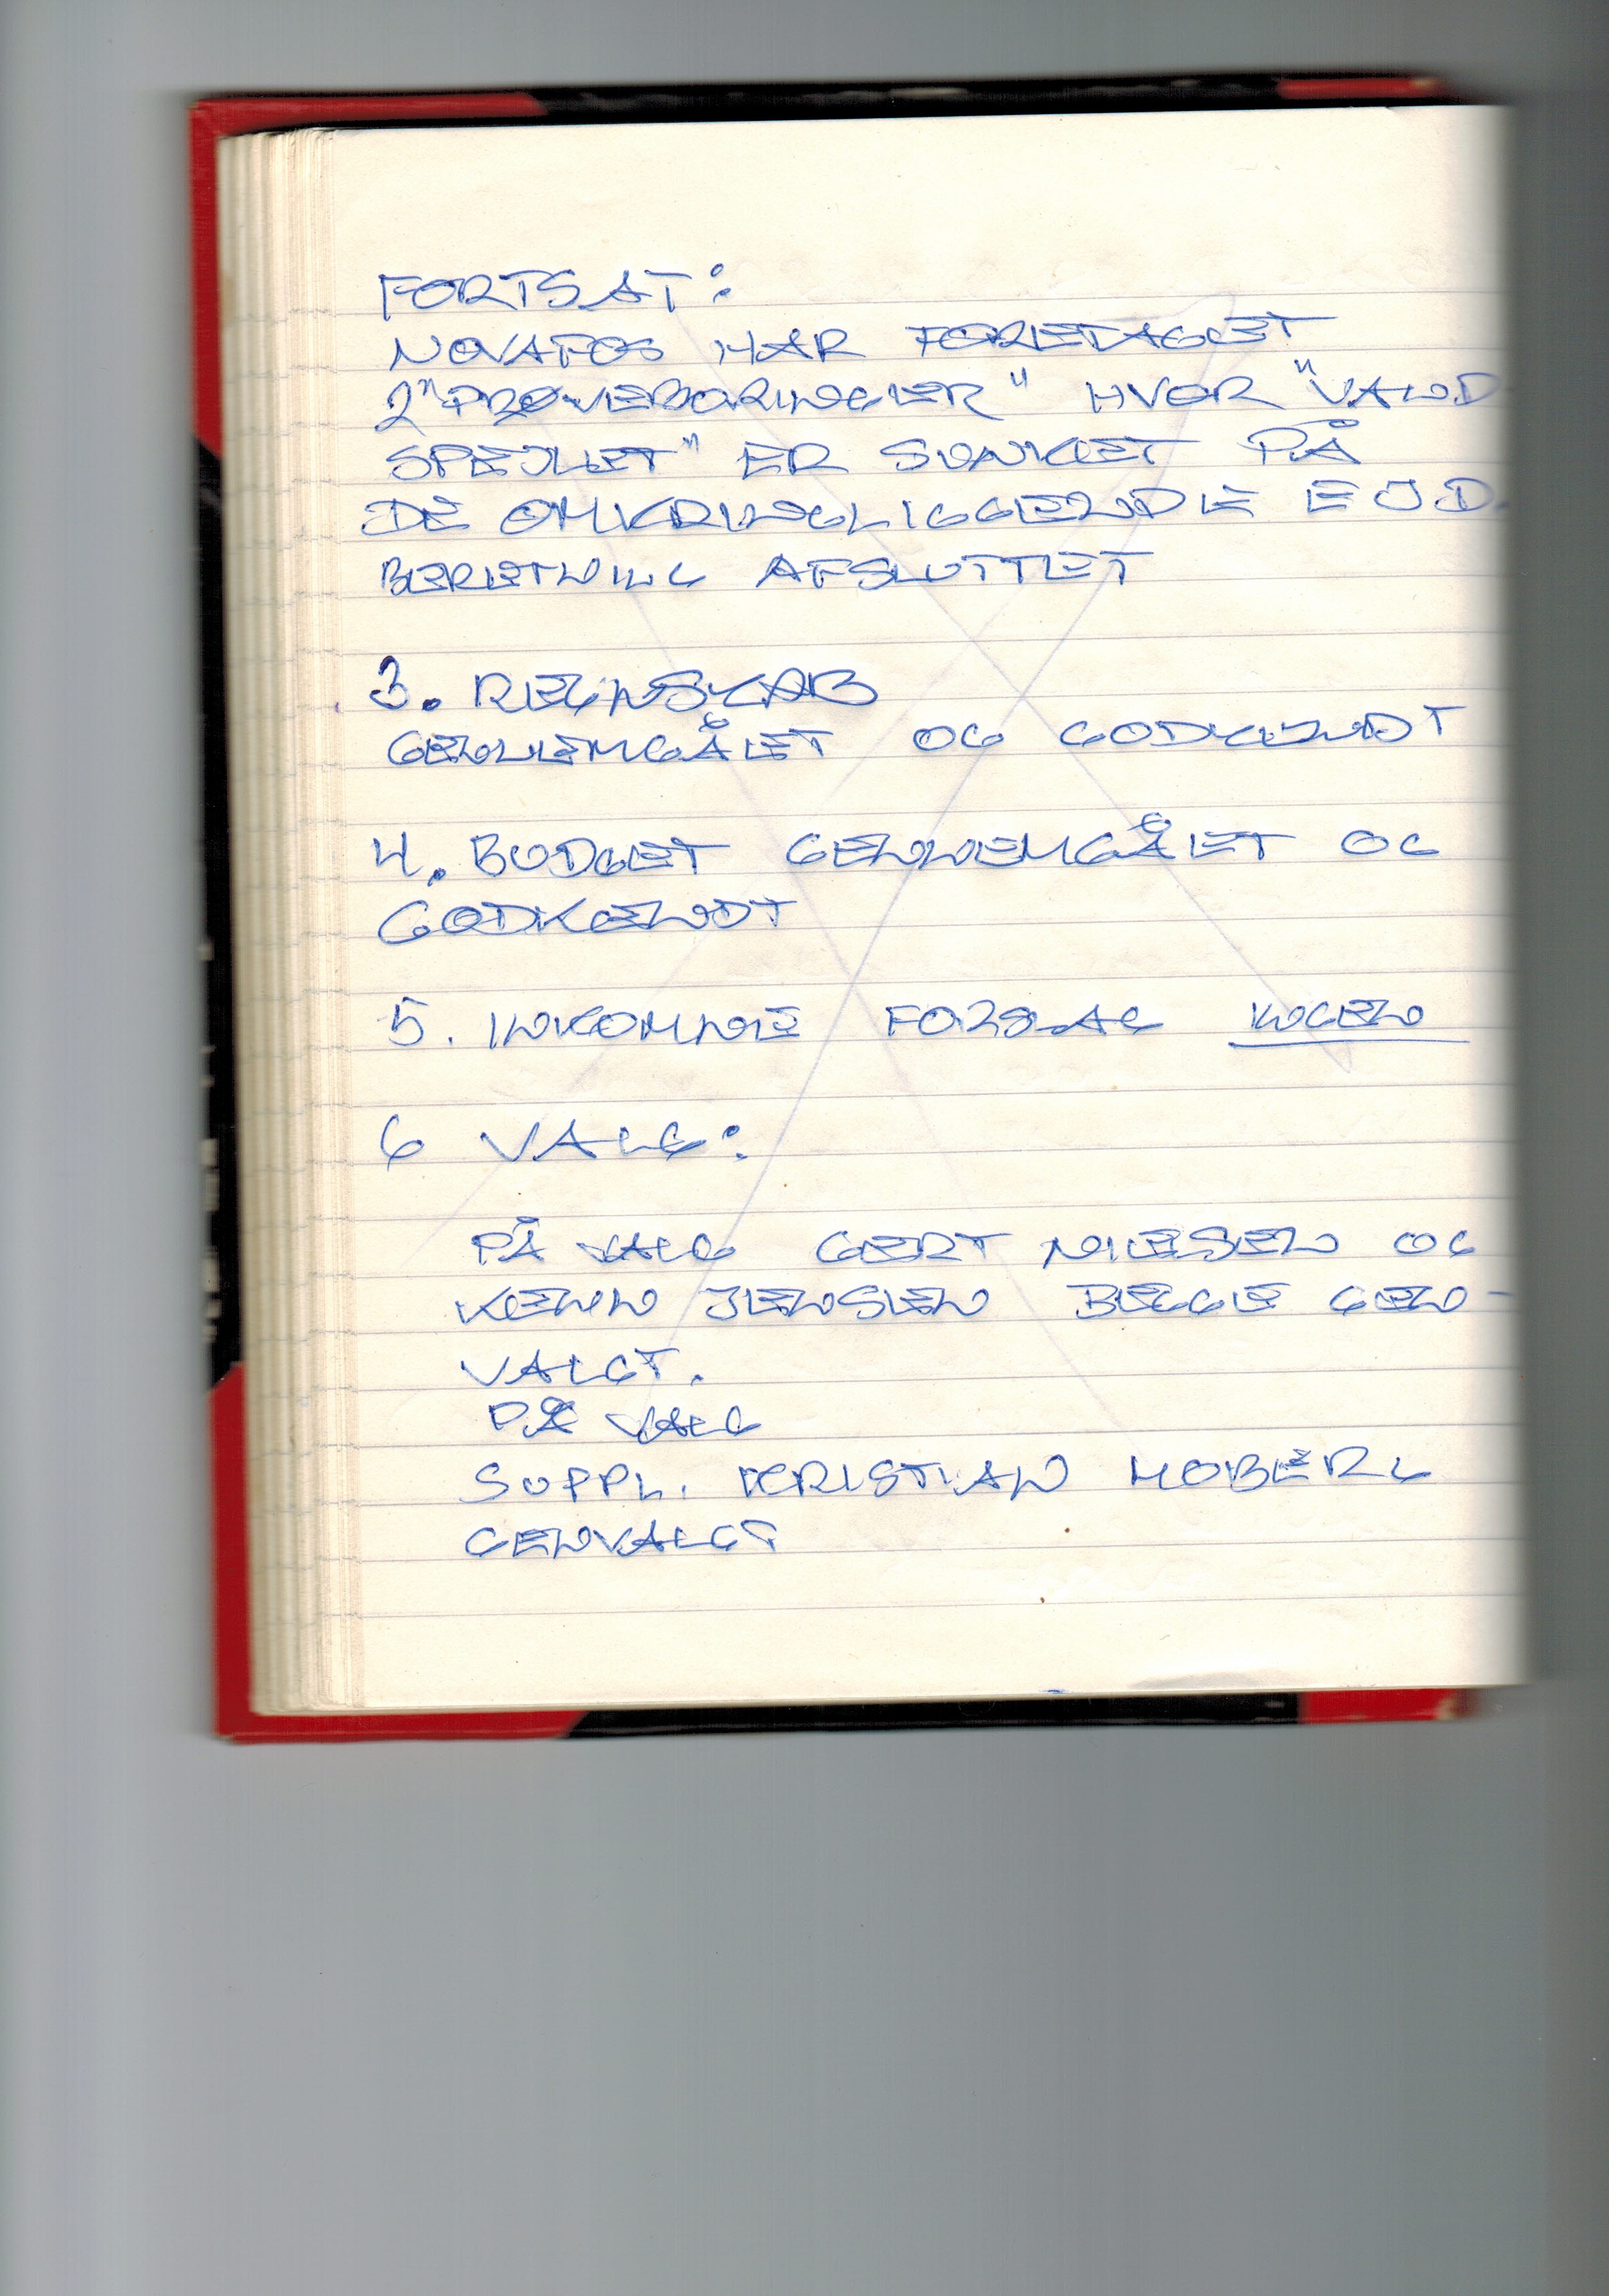 FORTSAT:
NOVAFOS HAR FORETAGET
2 "PRØVEBORINGER" HVOR "VAND
SPEJLET" ER SUNKET PÅ
DE OMKRINGLIGGENDE EJD.
BERETNING AFSLUTTET
3. REGNSKAB
GENNEMGÅET OG GODKENDT
4. BUDGET GENNEMGÅET OG
GODKENDT
5. INKOMNE FORSLAG INGEN
6 VALG:
PÅ VALG GERT NIELSEN OG
KENN JENSEN BEGGE GEN-
VALGT.
PÅ VALG
SUPPL. KRISTIAN MOBERG
GENVALGT